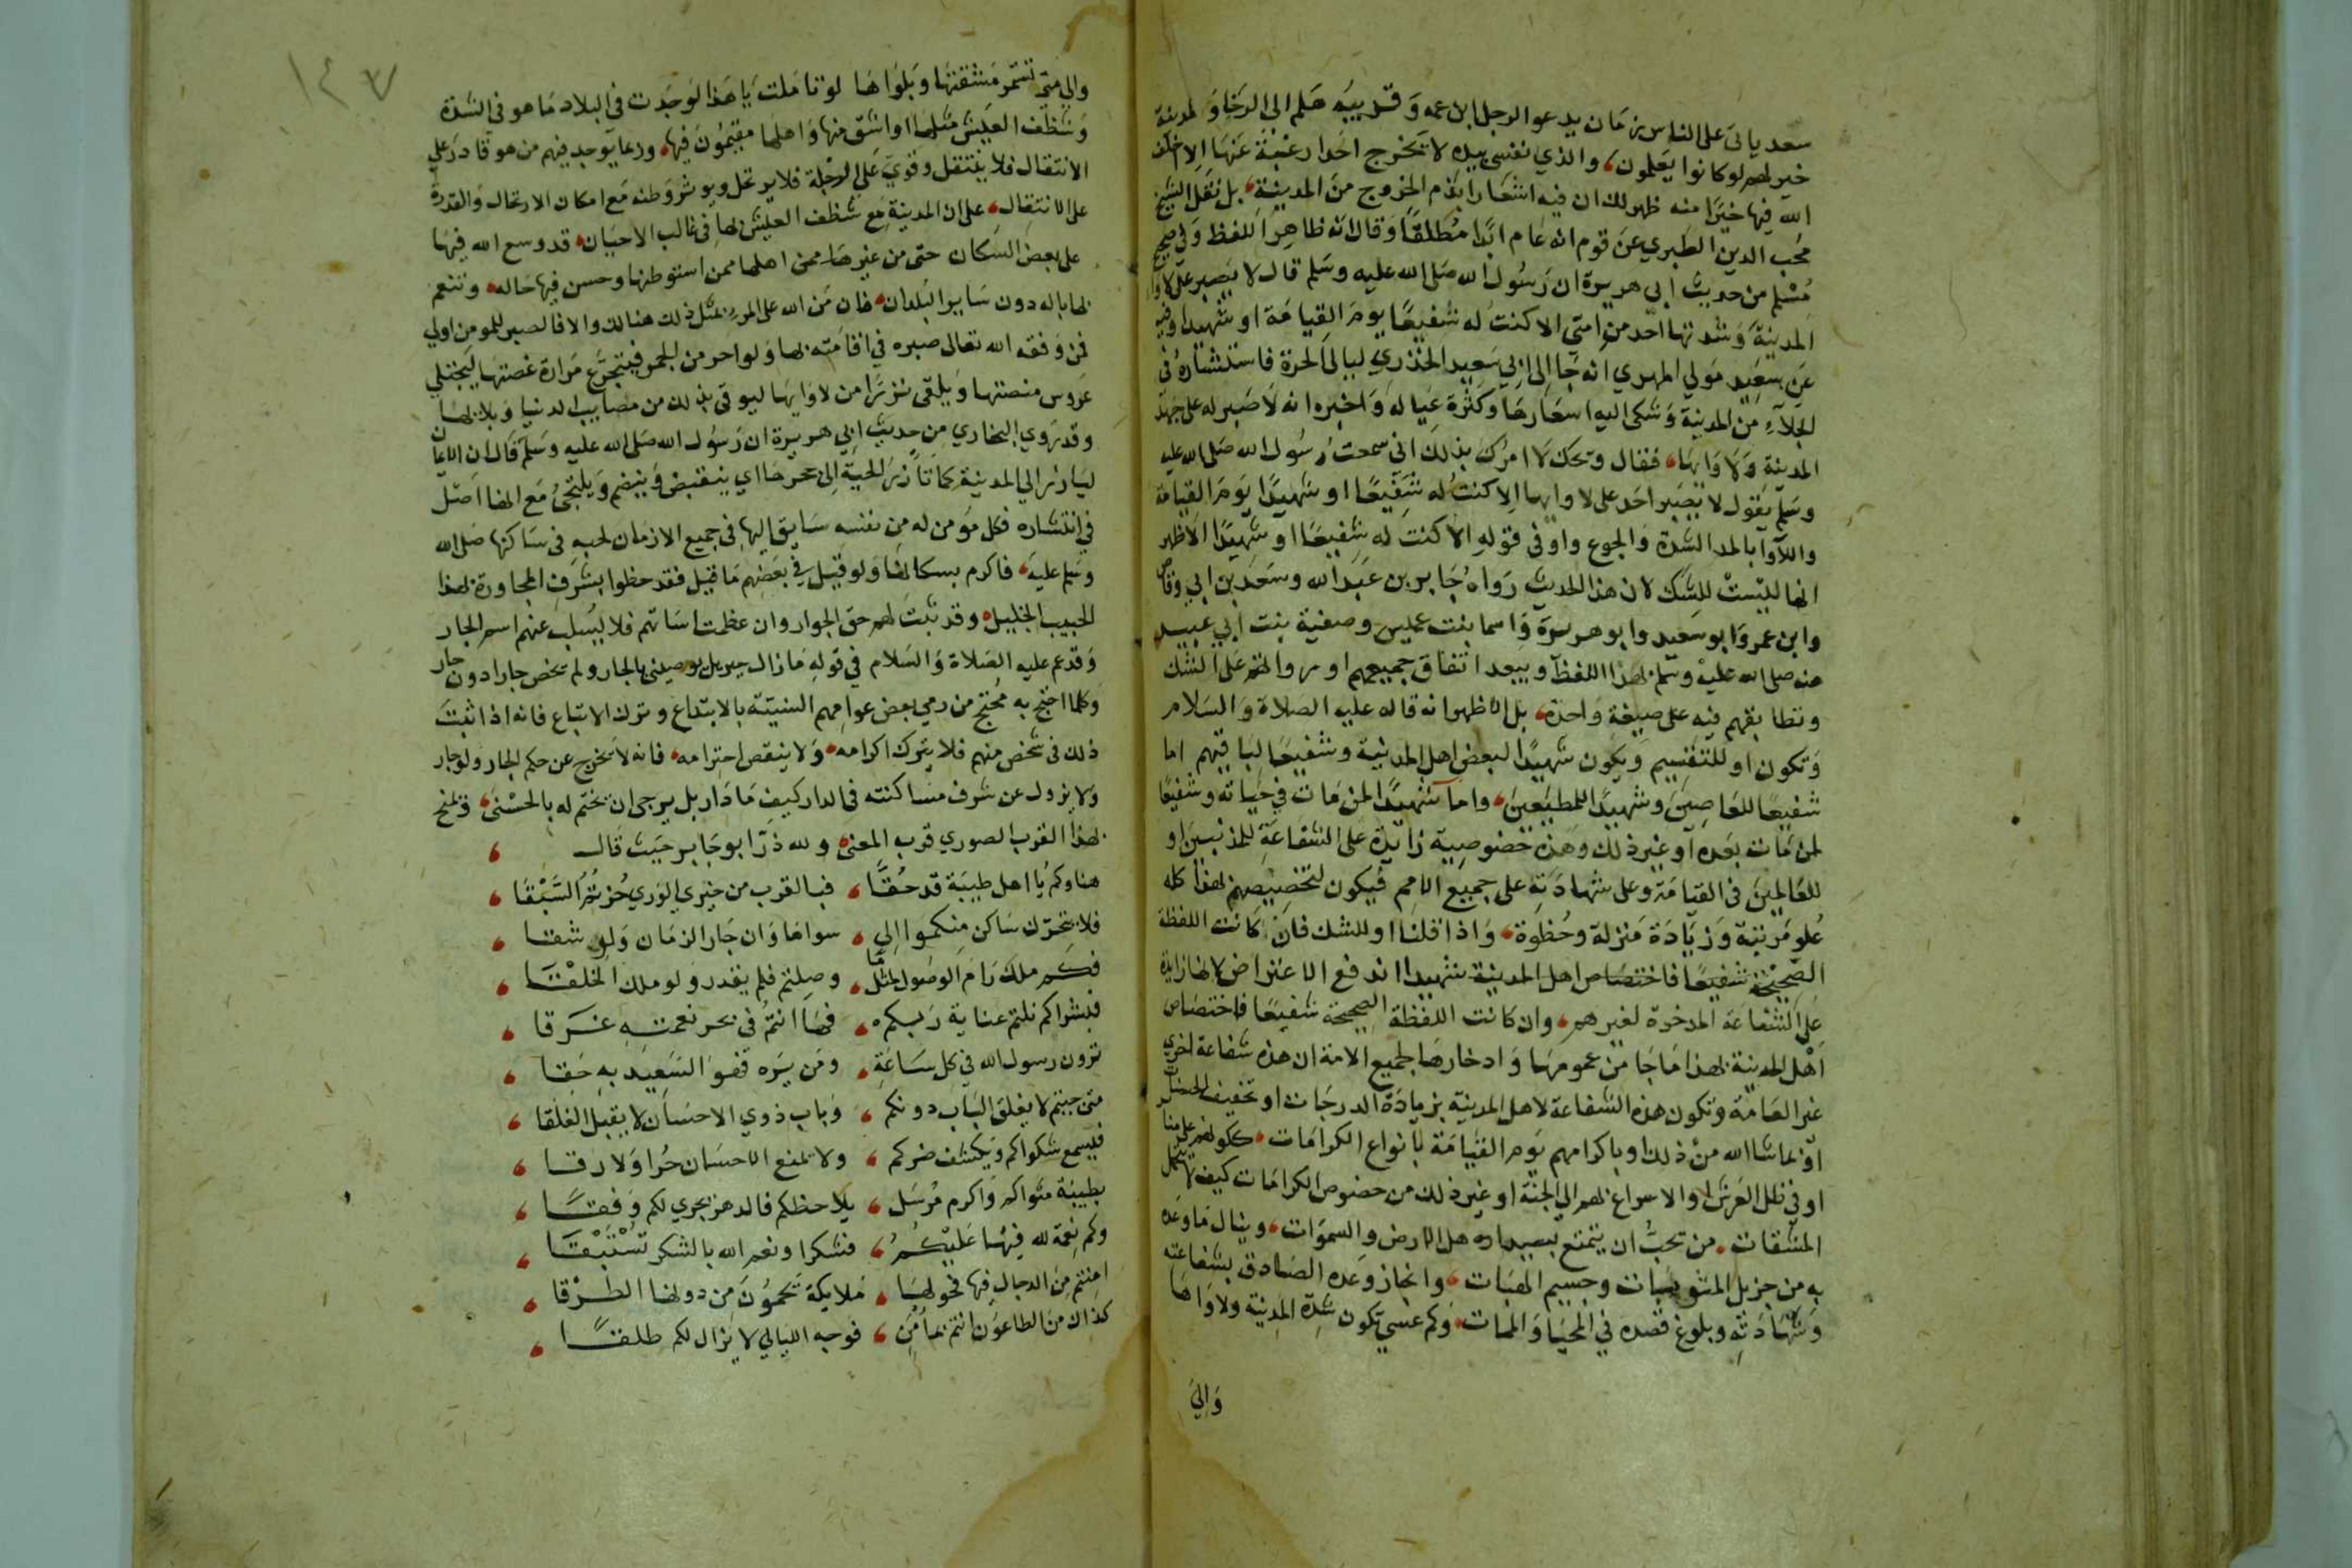 سعد ياتى على الناس زمان يدعو الرجل ابن عمه وقريبه هلم الى الرخا والمدينة
خير لهم لو كانوا يعلمون، والذي نفسي بيده لا يخرج احد رغبة عنها الا اخلف
الله فيها خيرا منه ظهر لك ان فيه اشعارا بذم الخروج من المدينة، بل نقل الشيخ
محب الدين الطبري عن قوم انه عام ابدا مطلقا وقال انه ظاهر اللفظ وفي صحيح
مسلم من حديث ابي هريرة ان رسول الله صلى الله عليه وسلم قال لا يصبر على لاوا
المدينة وشدتها احد من امتي الا كنت له شفيعا يوم القيامة او شهيدا وفيه
عن سعيد مولي المهري انه جا الى ابي سعيد الخدري ليالي الحرة فاستشاره في
الجلاء من المدينة وشكى اليه اسعارها وكثرة عياله واخبره انه لا صبر له على جهد
المدينة ولاوايها، فقال ويحك لا امرك بذلك اني سمعت رسول الله صلى الله عليه
وسلم يقول لا يصبر احد على لاوايها الا كنت له شفيعا او شهيدا يوم القيامة
واللاوا بالمد الشدة والجوع واو في قوله الا كنت له شفيعا او شهيدا الاظهر
انها ليست للشك لان هذا الحديث رواه جابر بن عبد الله وسعد بن ابي وقاص
وابن عمر وابو سعيد وابو هريرة واسما بنت عميس وصفية بنت ابي عبيد
عنه صلى الله عليه وسلم بهذا اللفظ ويبعد اتفاق جميعهم او رواتهم على الشك
وتطابقهم فيه على صيغة واحدة، بل الاظهر انه قاله عليه الصلاة والسلام
وتكون او للتقسيم ويكون شهيدا لبعض اهل المدينة وشفيعا لباقيهم اما
شفيعا للعاصين وشهيدا للمطيعين، واما شهيدا لمن مات في حياته وشفيعا
لمن مات بعده او غير ذلك وهذه خصوصية زايدة على الشفاعة للمذنبين او
للعالمين في القيامة وعلى شهادته على جميع الامم فيكون لتخصيصهم بهذا كله
علو مرتبة وزيادة منزلة وحظوة، واذا قلنا او للشك فان كانت اللفظة
الصحيحة شفيعا فاختصاص اهل المدينة شهيدا اندفع الاعتراض لانها زايدة
على الشفاعة المدخرة لغيرهم، وان كانت اللفظة الصحيحة شفيعا فاختصاص
اهل المدينة بهذا ما جا من عمومها وادخارها لجميع الامة ان هذه شفاعة اخري
غير العامة وتكون هذه الشفاعة لاهل المدينة بزيادة الدرجات او تخفيف الحساب
او بما شا الله من ذلك او باكرامهم يوم القيامة بانواع الكرامات، ككونهم على منابر
او في ظل العرش او الاسراع بهم الي الجنة او غير ذلك من خصوص الكرامات كيف لا يتحمل
المشقات، من يحب ان يتمتع بسيد اهل الارض والسموات، وينال ما وعده
به من جزيل المثوبات وجسيم الهبات، وانجاز وعده الصادق بشفاعته
وشهادته وبلوغ قصده في المحيا والممات، وكم عسي تكون شدة المدينة ولاواها
والي
١٤٣
والى متى تستمر مشقتها وبلواها لو تاملت يا هذا لوجدت في البلاد ما هو في الشدة
وشظف العيش مثلها او اشق منها واهلها مقيمون فيها، وربما يوجد فيهم من هو قادر على
الانتقال فلا ينتقل وقوي على الرحلة فلا يرتحل ويوثر وطنه مع امكان الارتحال والقدرة
على الانتقال، على ان المدينة مع شظف العيش بها في غالب الاحيان، قد وسع الله فيها
على بعض السكان حتى من غيرها ممن اهلها ممن استوطنها وحسن فيها حاله، وتنعم
بها باله دون ساير البلدان، فان من الله على المرء بمثل ذلك هنالك والا فالصبر للمومن اولي
فمن وفقه الله تعالى صبره في اقامته بها ولو احر من الجمر فيتجرع مرارة غصتها ليجتلي
عروس منصتها ويلقى نزرا من لاوايها ليوقى بذلك من مصايب الدنيا وبلايها
وقد روي البخاري من حديث ابي هريرة ان رسول الله صلى الله عليه وسلم قال ان الايمان
ليارز الي المدينة كما تارز الحية الى جحرها اي ينقبض وينضم ويلتجئ مع انها اصل
في انتشاره فكل مؤمن له من نفسه سايق اليها في جميع الازمان لحبه في ساكنها صلى الله
وسلم عليه، فاكرم بسكانها ولو قيل في بعضهم ما قيل فقد حظوا بشرف المجاورة لهذا
الحبيب الجليل، وقد ثبت لهم حق الجوار وان عظمت اساتهم فلا يسلب عنهم اسم الجار
وقد عم عليه الصلاة والسلام في قوله ما زال جبريل يوصيني بالجار ولم يخص جارا دون جار
وكلما احتج به محتج من رمي بعض عوامهم السنية بالابتداع وترك الاتباع فانه اذا ثبت
ذلك في شخص منهم فلا يترك اكرامه، ولا ينقص احترامه، فانه لا يخرج عن حكم الجار ولو جار
ولا يزول عن شرف مساكنته في الدار كيف ما دار بل يرجى ان يختم له بالحسنى، ويمنح
بهذا القرب الصوري قرب المعنى، ولله در ابو جابر حيث قال ،
هناوكم يا اهل طيبة قد حقا ، فبالقرب من خيري الوري حزتم السبقا ،
فلا يتحرك ساكن منكموا الي ، سواها وان جار الزمان ولو شقا ،
فكم ملك رام الوصول لمثل ما ، وصلتم فلم يقدر ولو ملك الخلقا ،
فبشراكم نلتم عناية ربكم ، فها انتم في بحر نعمته غرقا ،
ترون رسول الله في كل ساعة ، ومن يره فهو السعيد به حقا ،
متى جيتم لا يغلق الباب دونكم ، وباب ذوي الاحسان لا يقبل الغلقا ،
فيسمع شكواكم ويكشف ضركم ، ولا يمنع الاحسان حرا ولا رقا ،
بطيبة مثواكم واكرم مرسل ، يلاحظكم فالدهر يجري لكم وفقا ،
وكم نعمة لله فيها عليكم ، فشكرا ونعم الله بالشكر تستبقا ،
امنتم من الدجال فيها فحولها ، ملايكة تحمون من دونها الطرقا ،
كذاك من الطاعون انتم بمامن ، فوجه الليالي لا يزال لكم طلقا ،